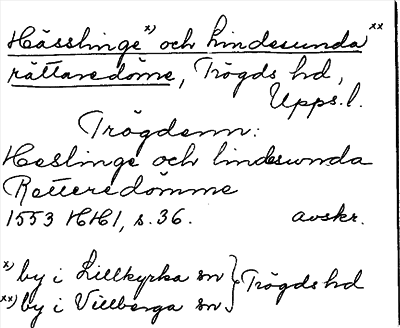 Hässlinge x) och Lindesunda xx)
rättaredöme, Trögds hd,
Upps. l.
Trögdenn:
Heslinge och lindesunda
Retteredömme
1553 HH1, s. 36. avskr.
x) by i Lillkyrka sn } Trögds hd
xx) by i Villberga sn